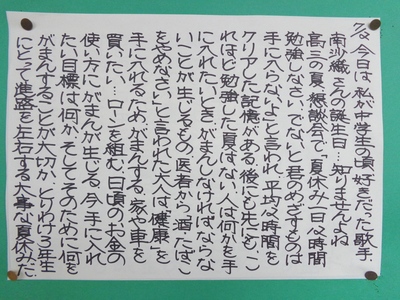 7/2 今日は、私が中学生の頃好きだった歌手、
南沙織さんの誕生日…知りませんよね
高三の夏、懇談会で「夏休み一日12時間
勉強しなさい。でないと君のめざすものは
手に入らないよ」と言われ、平均12時間を
クリアした記憶がある。後にも先にも、こ
れほど勉強した夏はない。人は何かを手
に入れたいとき、がまんしなければならな
いことが生じるもの。医者から「酒・たばこ
をやめなさい」と言われた大人は「健康」を
手に入れるため、がまんする。家や車を
買いたい…ローンを組む、日頃のお金の
使い方にがまんが生じる。今、手に入れ
たい目標は何か、そしてそのために何を
がまんすることが大切か、とりわけ3年生
にとって進路を左右する大事な夏休みだ。